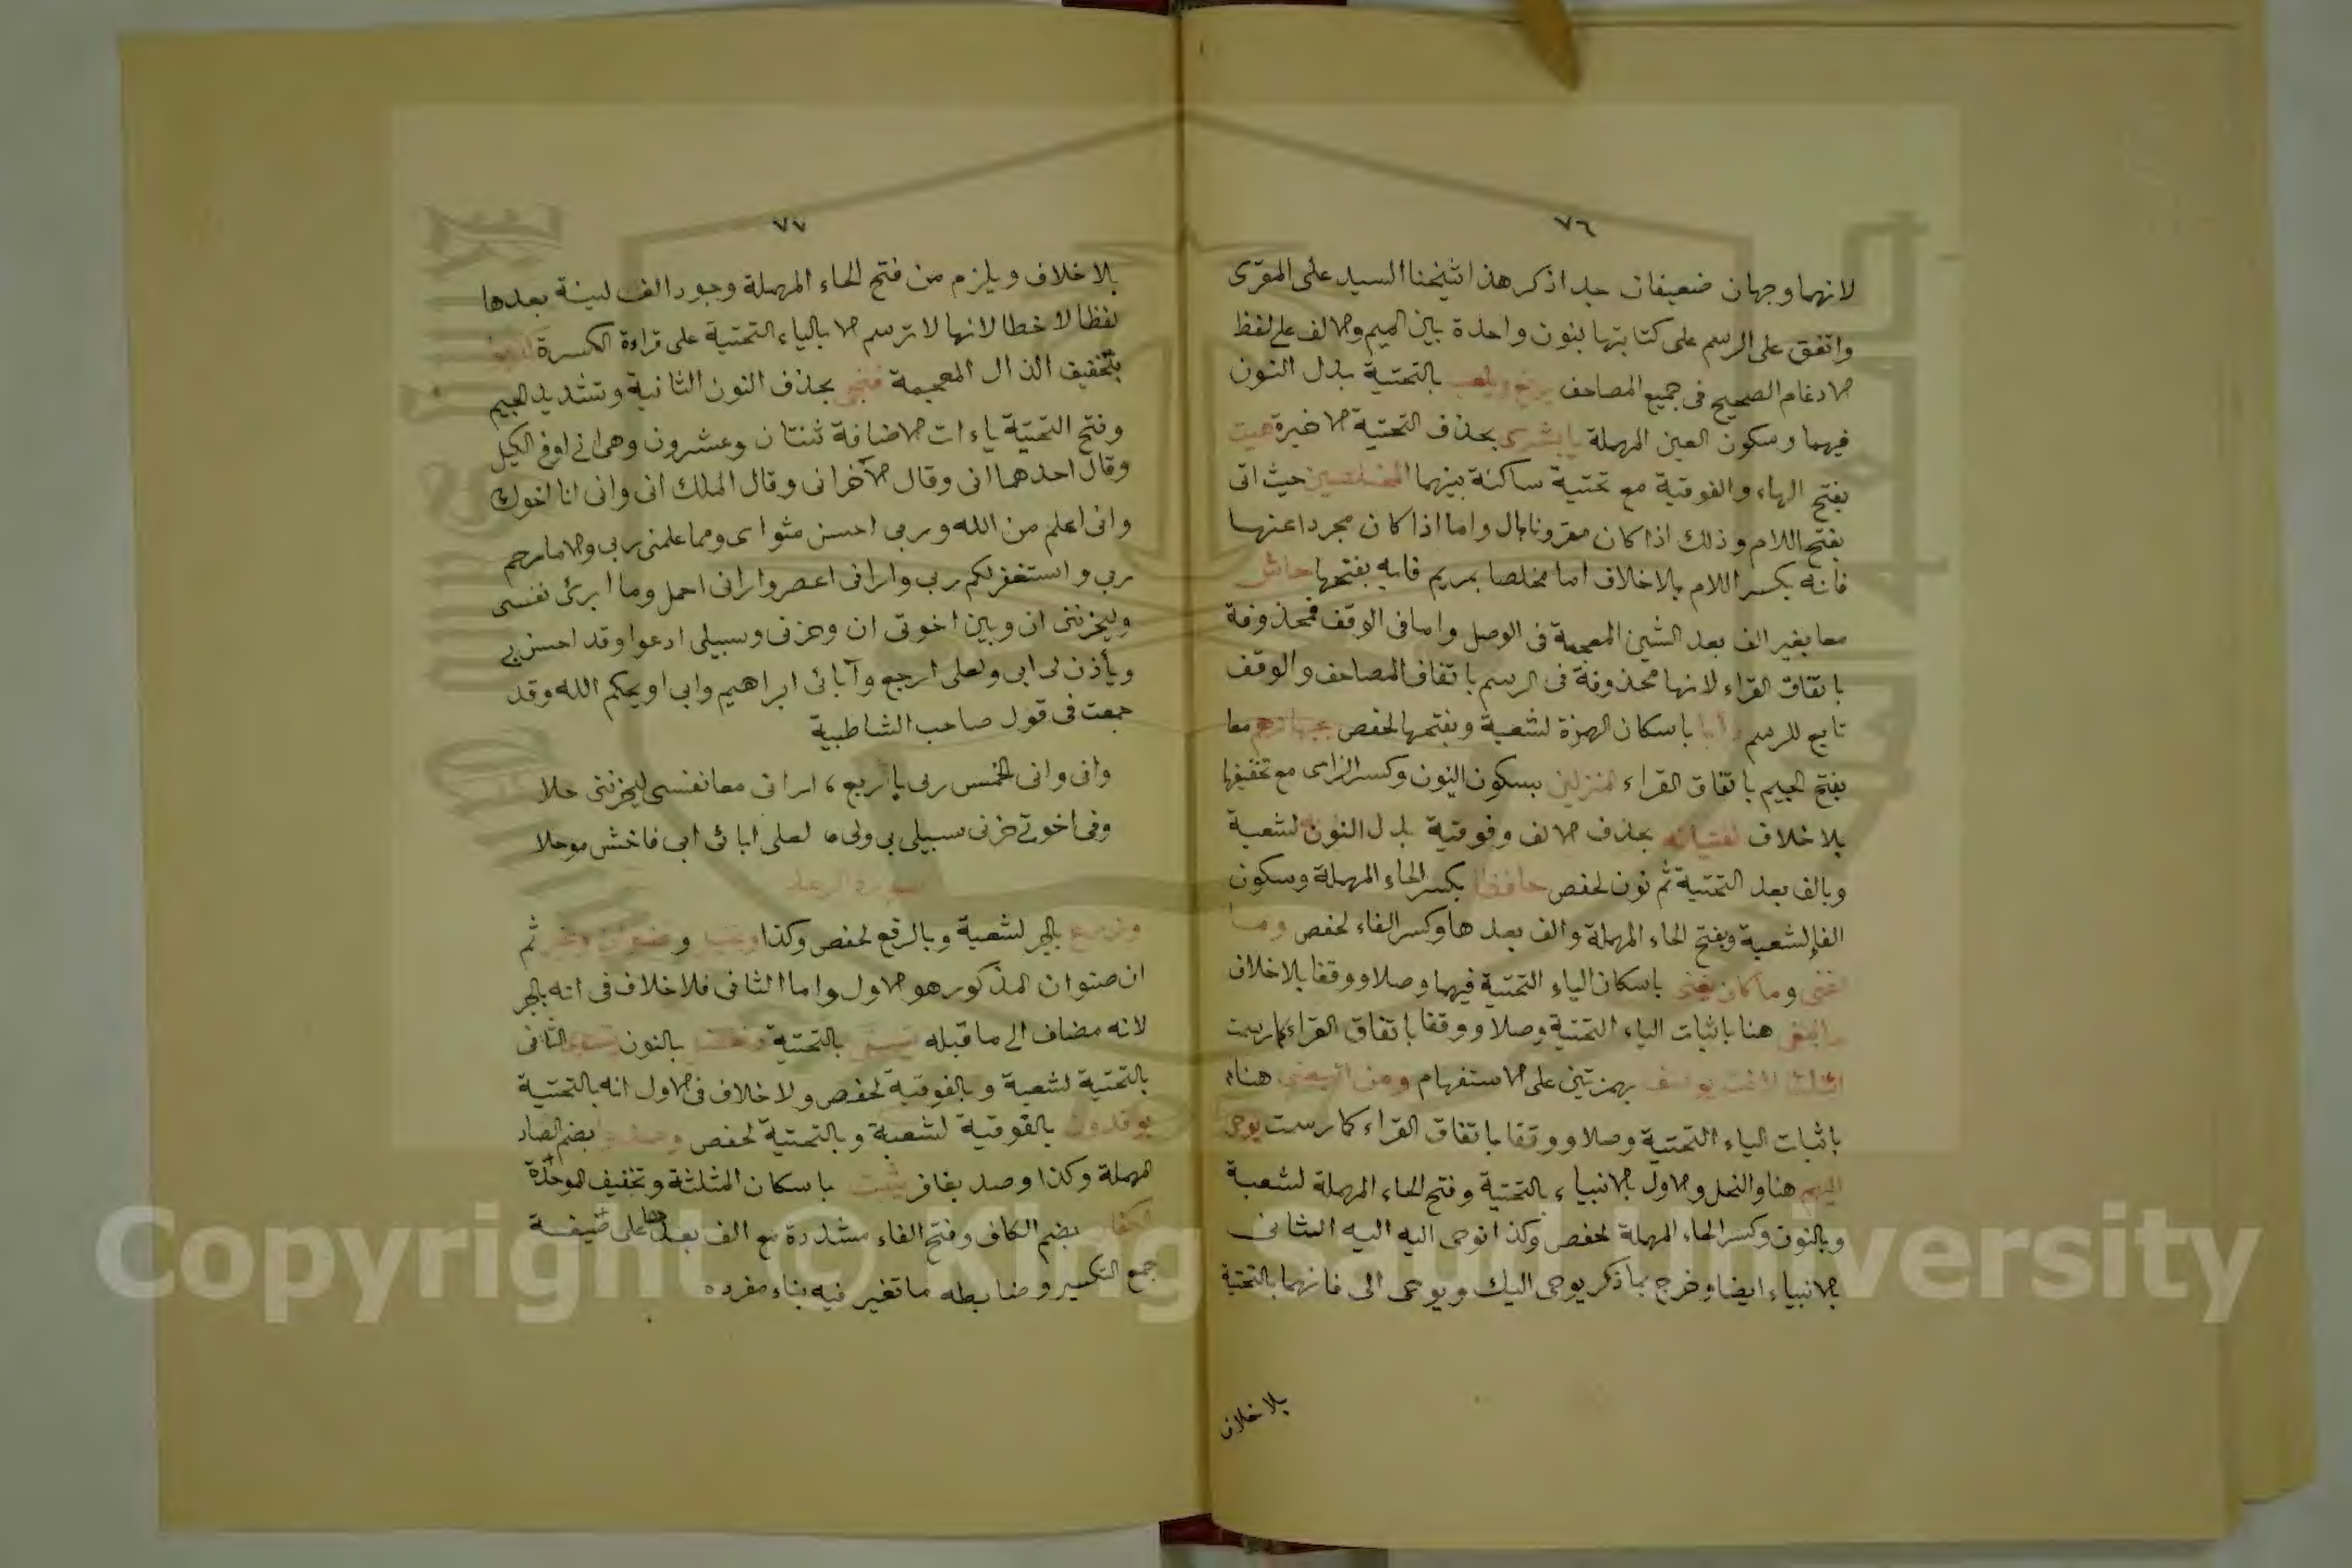 ٧٦
لانهما وجهان ضعيفان جدا ذكر هذا شيخنا السيد على المقرى
واتفق على الرسم على كتابتها بنون واحدة بين الميم والالف على لفظ
الادغام الصحيح فى جميع المصاحف يرتع ويلعب بالتحتية بدل النون
فيهما وسكون العين المهملة يا بشرى بحذف التحتية الاخيرة هيت
بفتح الهاء والفوقية مع تحتية ساكنة بينهما المخلصين حيث اتى
بفتح اللام وذلك اذا كان مقرونا بال واما اذا كان مجردا عنها
فانه بكسر اللام بلاخلاف اما مخلصا بمريم فانه بفتحها حاش
معا بغير الف بعد الشين المعجمة فى الوصل واما فى الوقف فمحذوفة
باتفاق القراء لانها محذوفة فى الرسم باتفاق المصاحف والوقف
تابع للرسم دأبا باسكان الهمزة لشعبة وبفتحها لحفص بجهازهم معا
بفتح الجيم باتفاق القراء المنزلين بسكون النون وكسر الزاى مع تخفيفها
بلا خلاف لفتيانه بحذف الالف وفوقية بدل النون لشعبة
وبالف بعد التحتية ثم نون لحفص حافظا بكسر الحاء المهملة وسكون
الفا لشعبة وبفتح الحاء المهملة والف بعدها وكسر الفاء لحفص وما
اغنى وما كان يغنى باسكان الياء التحتية فيهما وصلا ووقفا بلاخلاف
ما نبغى هنا باثبات الياء التحتية وصلا ووقفا باتفاق القراء كما رسمت
ائنك لانت يوسف بهمزتين على الاستفهام ومن اتبعنى هنا
باثبات الياء التحتية وصلا ووقفا باتفاق القراء كما رسمت يوحى
اليهم هنا والنحل والاول بالانبياء بالتحتية وفتح الحاء المهملة لشعبة
وبالنون وكسر الحاء المهملة لحفص وكذا نوحى اليه اليه الثانى
بالانبياء ايضا وخرج بما ذكر يوحى اليك ويوحى الى فانهما بالتحتية
بلا خلاف
٧٧
بلا خلاف ويلزم من فتح الحاء المهملة وجود الف لينة بعدها
لفظا لا خطا لانها لا ترسم الا بالياء التحتية على قراءة الكسرة
بتخفيف الذال المعجمة فنجى بحذف النون الثانية وتشديد الجيم
وفتح التحتية ياءات الاضافة ثنتان وعشرون وهى انى اوفى الكيل
وقال احدهما انى وقال الآخر انى وقال الملك انى وانى انا اخوك
وانى اعلم من الله وربى احسن مثواى ومما علمنى ربى والا ما رحم
ربى واستغفر لكم ربى وارانى اعصر وارانى احمل وما ابرئ نفسى
وليحزننى ان وبين اخوتى ان وحزنى وسبيلى ادعوا وقد احسن بى
ويأذن لى ابى ولعلى ارجع وآبائى ابراهيم وابى او يحكم الله وقد
جمعت فى قول صاحب الشاطبية
وانى وانى الخمس ربى باربع ، ارانى معا نفسى ليحزننى حلا
وفى اخوتى حزنى سبيلى بى ولى ، لعلى ابائى ابى فاخش موحلا
سورة الرعد
وزرع بالجر لشعبة وبالرفع لحفص وكذا ونخيل و صنوان وغير ثم
ان صنوان المذكور هو الاول واما الثانى فلا خلاف فى انه بالجر
لانه مضاف الى ما قبله يسقى بالتحتية ونفضل بالنون الثانى
بالتحتية لشعبة وبالفوقية لحفص ولا خلاف فى الاول انه بالتحتية
يوقدون بالفوقية لشعبة وبالتحتية لحفص وصدوا بضم الصاد
المهملة وكذا وصد بغافر يثبت باسكان المثلثة وتخفيف الموحدة
الكفار بضم الكاف وفتح الفاء مشددة مع الف بعدها على صيغة
جمع التكسير وضابطه ما تغير فيه بناء مفرده
Copyright © King Saud University